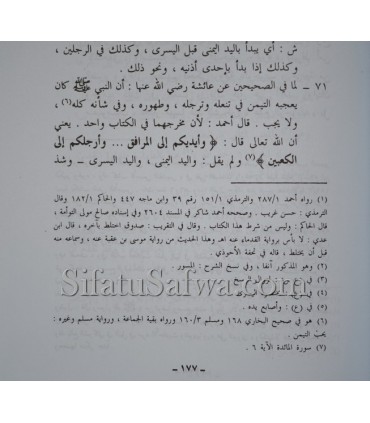 ش : أي يبدأ باليد اليمنى قبل اليسرى ، وكذلك في الرجلين ،
وكذلك إذا بدأ بإحدى أذنيه ، ونحو ذلك .
٧١ – لما في الصحيحين عن عائشة رضي الله عنها : أن النبي ﷺ كان
يعجبه التيمن في تنعله وترجله ، وطهوره ، وفي شأنه كله(٦) ،
ولا يجب . قال أحمد : لأن مخرجهما في الكتاب واحد . يعني
أن الله تعالى قال : ﴿ وأيديكم إلى المرافق ... وأرجلكم إلى
الكعبين ﴾(٧) ولم يقل : واليد اليمنى ، واليد اليسرى – وشذ
(١) رواه أحمد ٢٨٧/١ والترمذي ١٥١/١ رقم ٣٩ وابن ماجه ٤٤٧ والحاكم ١٨٢/١ وقال
الترمذي : حسن غريب . وصححه أحمد شاكر في المسند ٢٦٠٤ وفي إسناده صالح مولى التوأمة ،
قال الحاكم : وليس من شرط هذا الكتاب . وقال الحافظ في التقريب : صدوق اختلط بآخره ، قال ابن
عدي : لا بأس برواية القدماء عنه اهـ وهذا الحديث من رواية موسى بن عقبة عنه ، وسماعه منه
قبل أن يختلط ، قاله في تحفة الأحوذي .
(٢) وهو المذكور آنفا ، وفي نسخ الشرح : المسور .
(٣) في
(٤)
(٥) في (ع) : وأصابع يده .
SifatuSafwa.com
(٦) هو في صحيح البخاري ١٦٨ ومسلم ١٦٠/٣ ورواه بقية الجماعة ، ورواية مسلم وغيره :
يحب التيمن .
(٧) سورة المائدة الآية ٦ .
– ١٧٧ –